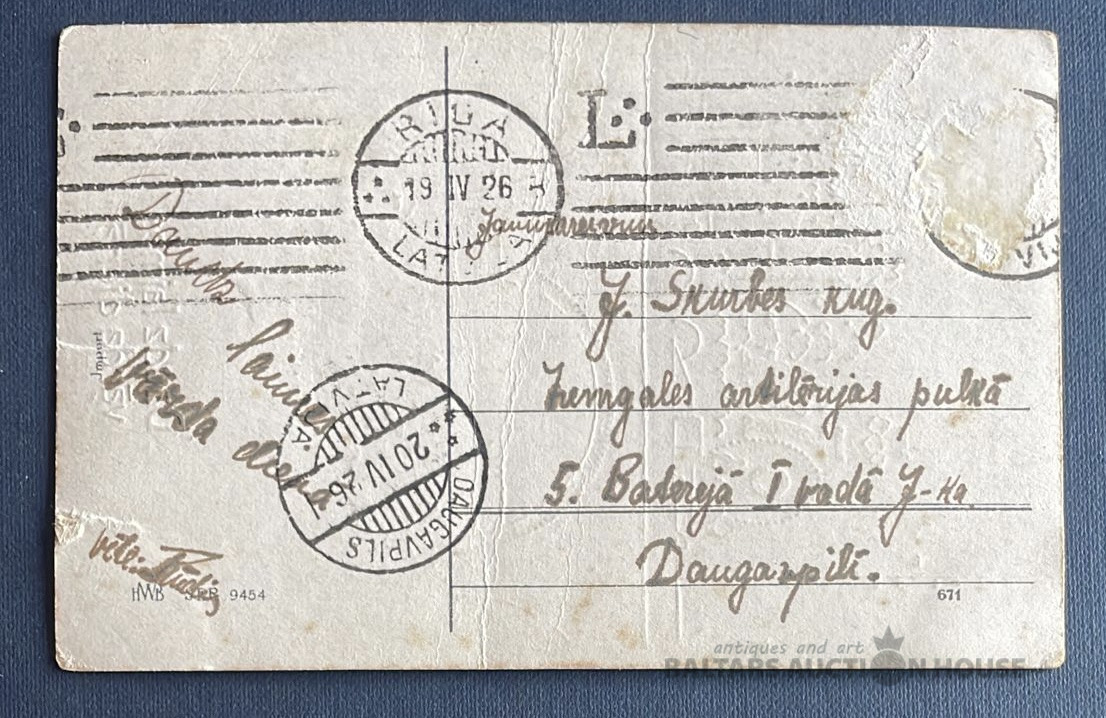 RIGA
19 IV 26
LATVIJA
L.
Daudz
laimes
vārda dienā
vēlē
J. Skurbes kug.
Zemgales artilērijas pulkā
5. Baterejā I vadā J-ka
Daugavpilī.
LATVIJA
20 IV 26
DAUGAVPILS
Import
HWB SER 9454
671
antiques and art
BALTARS AUCTION HOUSE